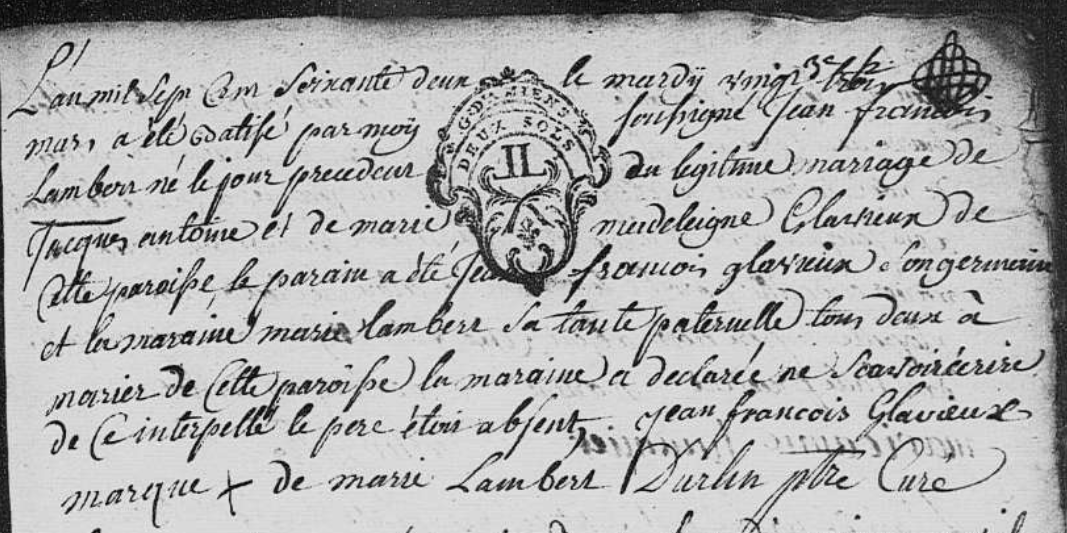 L'an mil sept Cent soixante deux le mardÿ vingt 3e trois
mars a été batisé par moÿ soussigné Jean francois
Lambert né le jour precedent du legitime mariage de
Jacques antoine et de marie madeleigne Glavieux de
Cette paroisse, le parain a été Jean francois glavieux Son germain
et la maraine marie lambert Sa tante paternelle tous deux à
marier de Cette paroisse la maraine a declarée ne Scavoir écrire
de Ce interpellé le pere étoit absent, Jean francois Glavieux
marque + de marie Lambert Durlin ptre Curé
G. D'AMIENS
DEUX SOLS
II